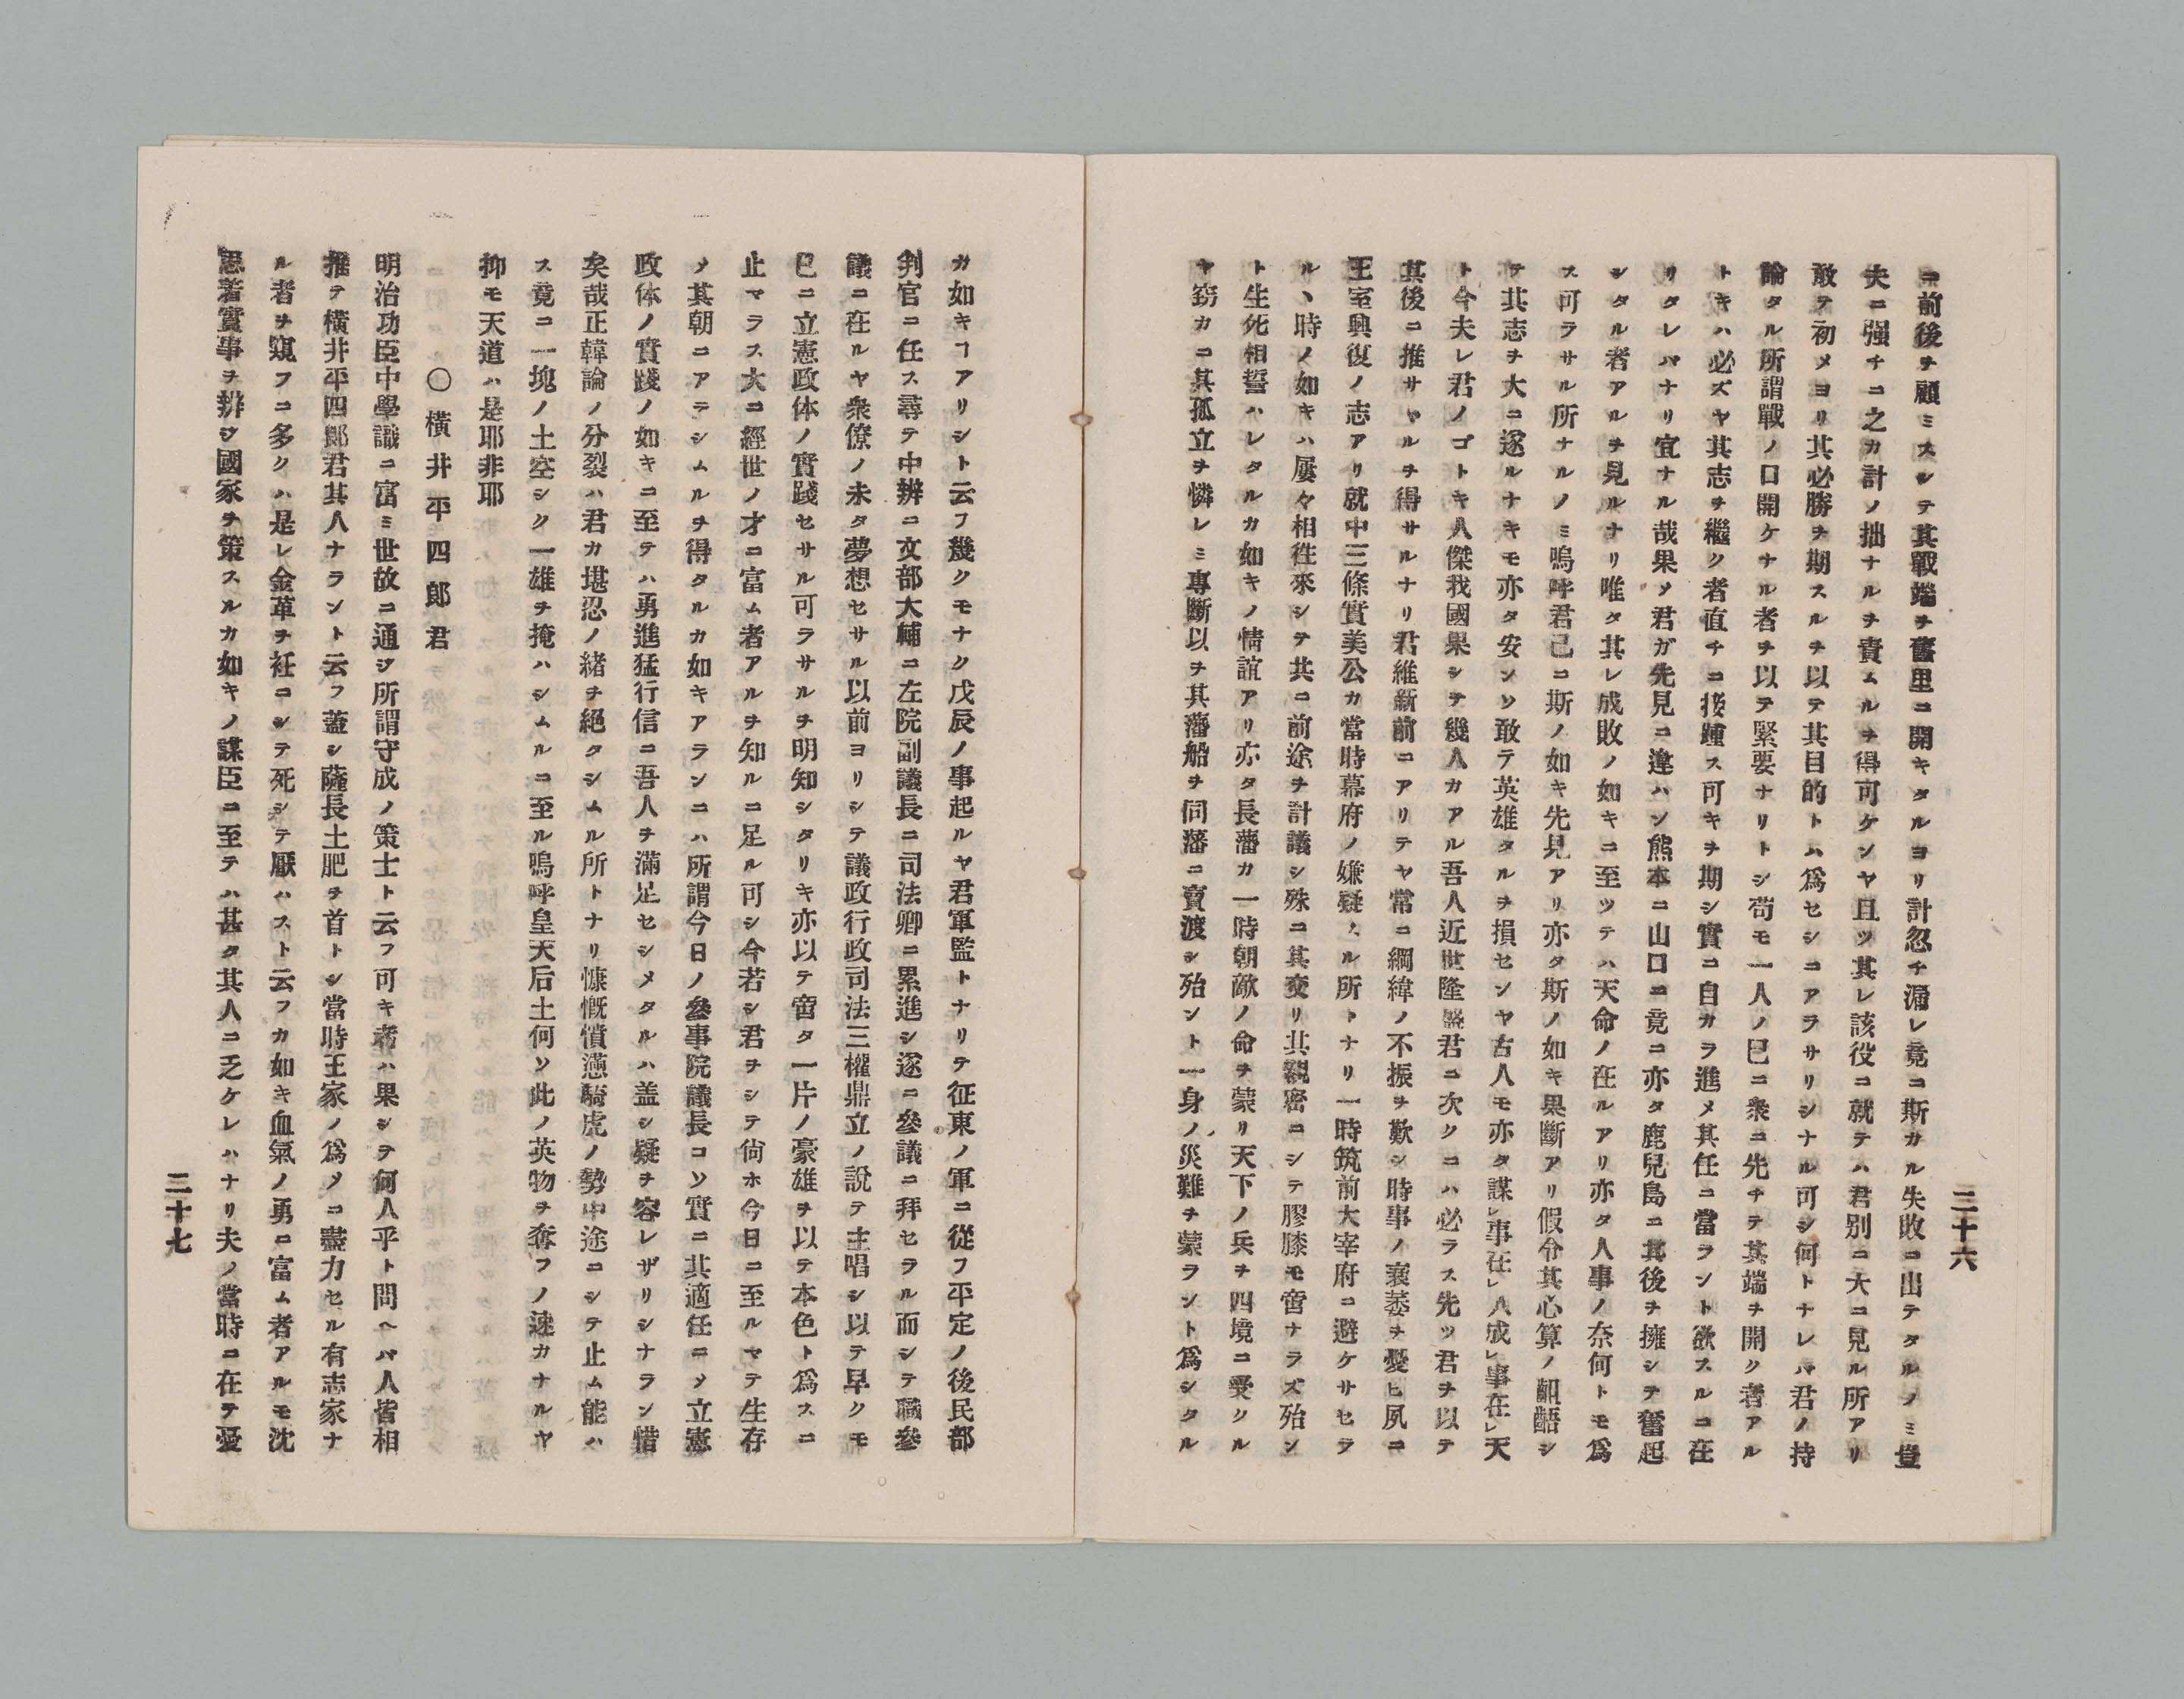 三十六
ニ前後ヲ顧ミスシテ其戰端ヲ舊里ニ開キタルヨリ計忽チ漏レ竟ニ斯カル失敗ニ出テタルノミ豈
夫ニ强チニ之カ計ノ拙ナルヲ責ムルヲ得可ケンヤ且ツ其レ該役ニ就テハ君別ニ大ニ見ル所アリ
敢テ初メヨリ其必勝ヲ期スルヲ以テ其目的トハ爲セシコアラサリシナル可シ何トナレハ君ノ持
論タル所謂戰ノ口開ケナル者ヲ以テ緊要ナリトシ苟モ一人ノ巳ニ衆ニ先チテ其端ヲ開ク者アル
トキハ必ズヤ其志ヲ繼ク者直チニ接踵ス可キヲ期シ實ニ自カラ進メ其任ニ當ラント欲スルニ在
リタレハナリ宜ナル哉果メ君ガ先見ニ違ハン熊本ニ山口ニ竟ニ亦タ鹿兒島ニ其後ヲ擁シテ奮起
シタル者アルヲ見ルナリ唯タ其レ成敗ノ如キニ至ツテハ天命ノ在ルアリ亦タ人事ノ奈何トモ爲
ス可ラサル所ナルノミ嗚呼君己ニ斯ノ如キ先見アリ亦タ斯ノ如キ果斷アリ假令其心算ノ齟齬シ
テ其志ヲ大ニ遂ルナキモ亦タ安ンソ敢テ英雄タルヲ損センヤ古人モ亦タ謀レ事在レ人成レ事在レ天
ト今夫レ君ノゴトキ人傑我國果シテ幾人カアル吾人近世隆盛君ニ次クニハ必ラス先ツ君ヲ以テ
其後ニ推サヽルヲ得サルナリ君維新前ニアリテヤ常ニ綱緯ノ不振ヲ歎シ時事ノ衰萎ヲ憂ヒ夙ニ
王室興復ノ志アリ就中三條實美公カ當時幕府ノ嫌疑スル所トナリ一時筑前大宰府ニ避ケサセラ
ルヽ時ノ如キハ屢々相徃來シテ共ニ前途ヲ計議シ殊ニ其交リ其親密ニシテ膠膝モ啻ナラズ殆ン
ト生死相誓ハレタルカ如キノ情誼アリ亦タ長藩カ一時朝敵ノ命ヲ蒙リ天下ノ兵ヲ四境ニ受クル
ヤ窃カニ其孤立ヲ憐レミ專斷以ヲ其藩船ヲ伺藩ニ賣渡シ殆ント一身ノ災難ヲ蒙ラント爲シタル
カ如キヿアリシト云フ幾クモナク戊辰ノ事起ルヤ君軍監トナリテ征東ノ軍ニ從フ平定ノ後民部
判官ニ任ス尋テ中辨ニ文部大輔ニ左院副議長ニ司法卿ニ累進シ遂ニ參議ニ拜セラル而シテ職參
議ニ在ルヤ衆僚ノ未タ夢想セサル以前ヨリシテ議政行政司法三權鼎立ノ說テ主唱シ以テ早クモ
巳ニ立憲政体ノ實踐セサル可ラサルヲ明知シタリキ亦以テ啻タ一片ノ豪雄ヲ以テ本色ト爲スニ
止マラス大ニ經世ノ才ニ富ム者アルヲ知ルニ足ル可シ今若シ君ヲシテ尙ホ今日ニ至ルマテ生存
メ其朝ニアラシムルヲ得タルカ如キアランニハ所謂今日ノ參事院議長コソ實ニ其適任ニメ立憲
政体ノ實踐ノ如キニ至テハ勇進猛行信ニ吾人ヲ滿足セシメタルハ盖シ疑ヲ容レザリシナラン惜
矣哉正韓論ノ分裂ハ君カ堪忍ノ緖ヲ絕タシムル所トナリ慷慨憤懣騎虎ノ勢中途ニシテ止ム能ハ
ス竟ニ一塊ノ土空シク一雄ヲ掩ハシムルニ至ル嗚呼皇天后土何ソ此ノ英物ヲ奪フノ速カナルヤ
抑モ天道ハ是耶非耶
〇橫井平四郞君
明治功臣中學識ニ富ミ世故ニ通シ所謂守成ノ策士ト云フ可キ者ハ果シテ何人乎ト問ヘハ人皆相
推テ橫井平四郞君其人ナラント云フ葢シ薩長土肥ヲ首トシ當時王家ノ爲メニ盡力セル有志家ナ
ル者ヲ窺フニ多クハ是レ金革ヲ衽ニシテ死シテ厭ハスト云フカ如キ血氣ノ勇ニ富ム者アルモ沈
思着實事ヲ辨シ國家ヲ策スルカ如キノ謀臣ニ至テハ甚タ其人ニ乏ケレハナリ夫ノ當時ニ在テ憂
三十七